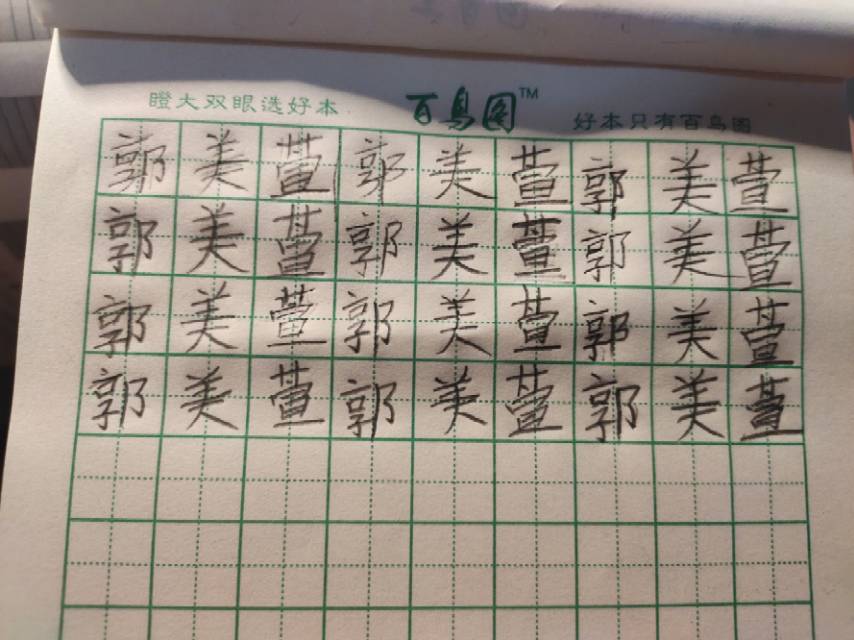 瞪大双眼选好本 百鸟图™ 好本只有百鸟图
郭美萱郭美萱郭美萱
郭美萱郭美萱郭美萱
郭美萱郭美萱郭美萱
郭美萱郭美萱郭美萱